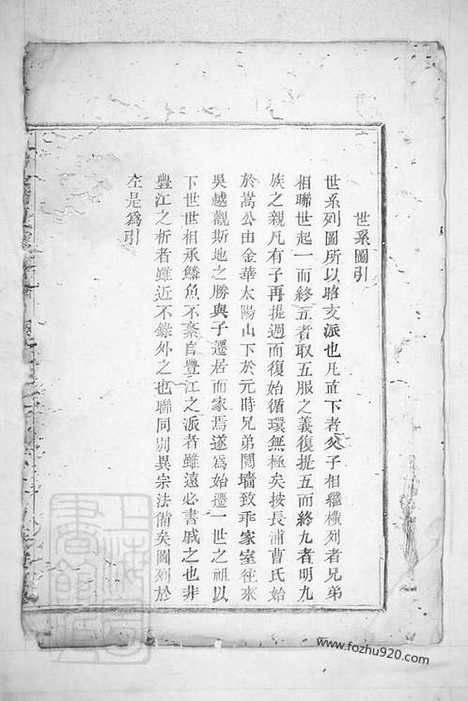 世系圖引
世系列圖所以貽支派也凡直下者父子相繼橫列者兄弟
相聯世起一而終五者取五服之義復提五而終九者明九
族之親凡有子再提週而復始循環無極矣按長浦曹氏始
於嵩公由金華太陽山下於元時兄弟鬩墻致乖家室往來
吳越觀斯地之勝與子遷居而家焉遂為始遷一世之祖以
下世世相承鱗魚不紊自豐江之派者雖遠必書戚之也非
豐江之析者雖近不錄外之也聯同別異宗法備矣圖列於
左是為引
www.fozhu920.com